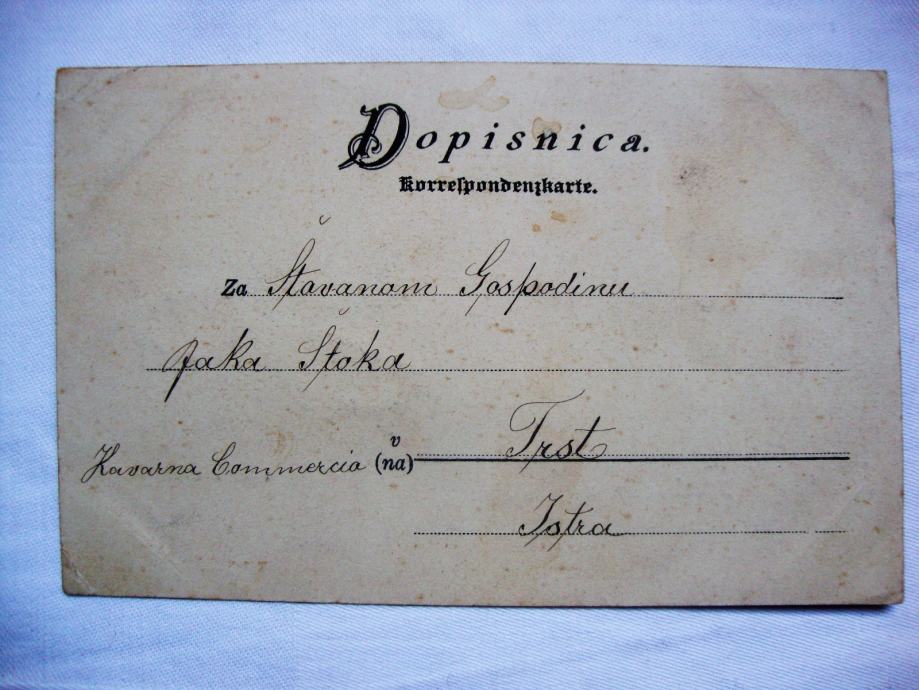 Dopisnica.
Korrespondenzkarte.
Za Štovanom Gospodinu
Jaka Štoka
Kavarna Commercio v (na) Trst
Istra